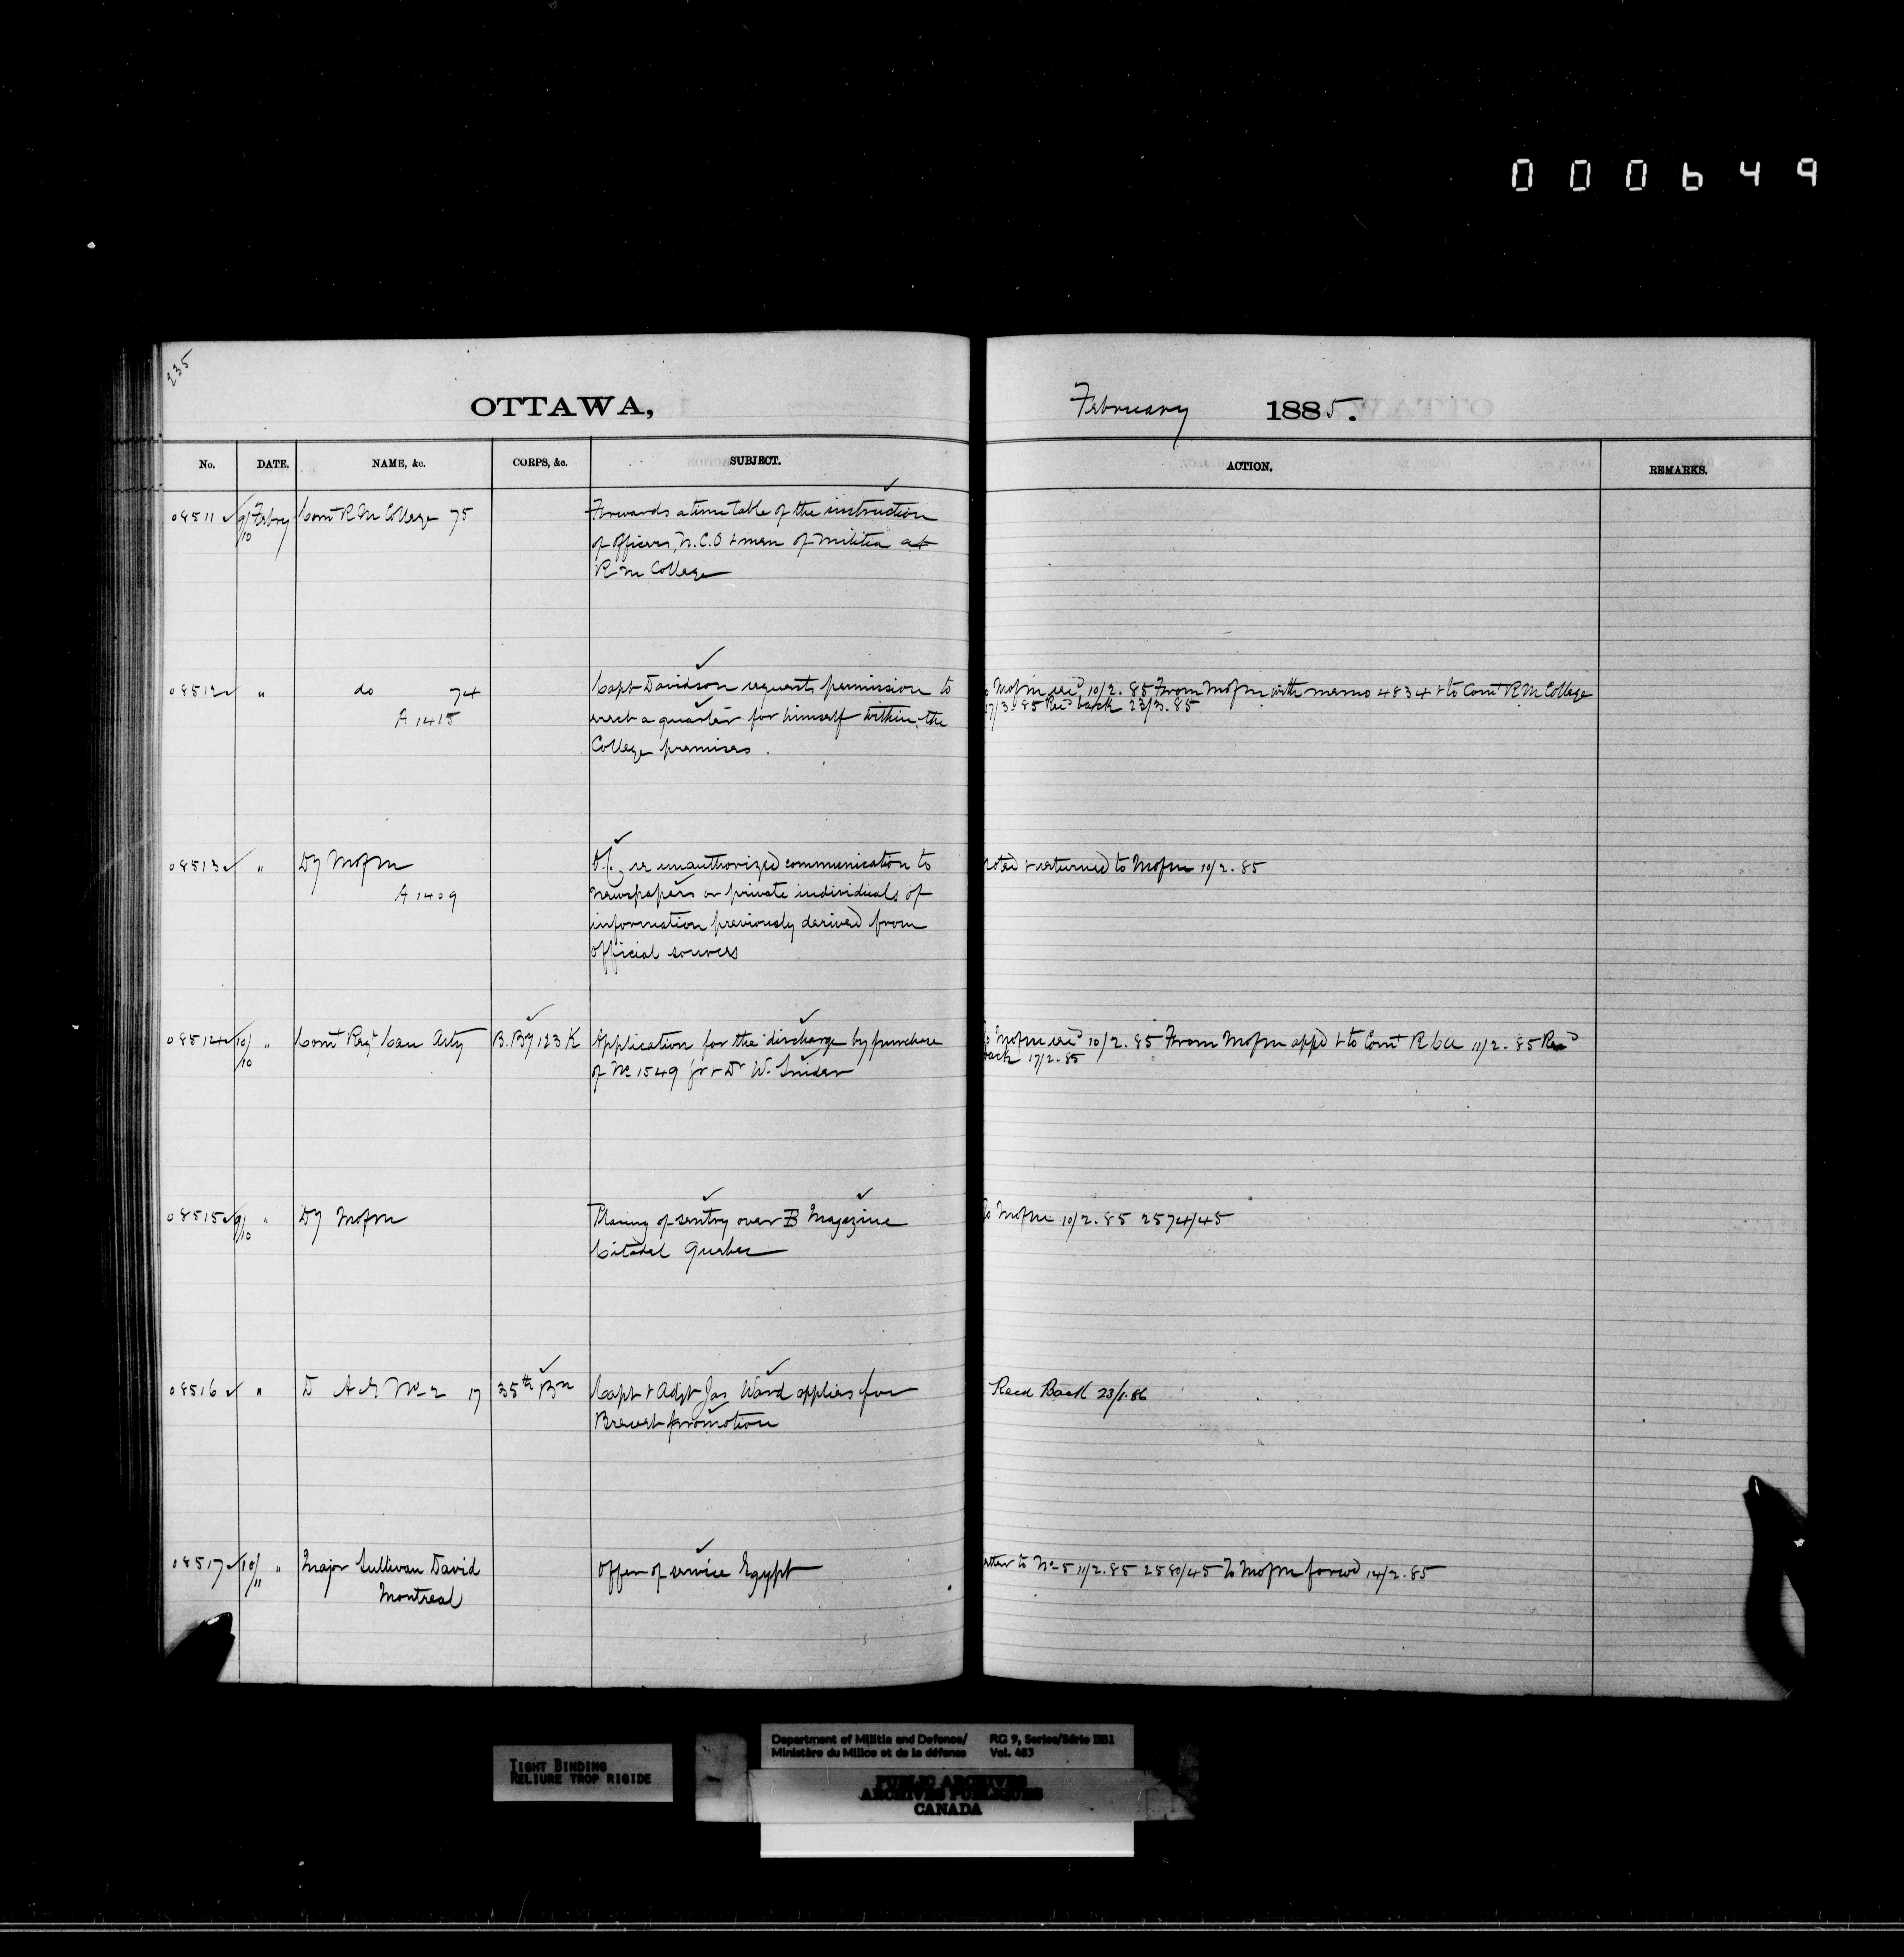 000649
235
OTTAWA,
February 1885.
No. DATE. NAME, &c. CORPS, &c. SUBJECT. ACTION. REMARKS.
08511 9/10 Febry Comt R M College 75 Forwards a time table of the instruction
of Officers, N.C.O + men of Militia at
R M College
08512 " do 74 Capt Davidson requests permission to
A 1415 erect a quarter for himself within the
College premises.
Mofm recd 10/2.85 From Mofm with memo 4834 + to Comt R M College
17/3.85 Recd back 23/3.85
08513 " Dy Mofm O.C. re unauthorized communication to
A 1409 newspapers or private individuals of
information previously derived from
official sources
noted + returned to Mofm 10/2.85
08514 10/10 " Comt Regt Can Arty B. By 123 K Application for the discharge by purchase
of No 1549 Gr + Dr W. Snider
To Mofm recd 10/2.85 From Mofm appd + to Comt R C A 11/2.85 Recd
back 17/2.85
08515 9/10 " Dy Mofm Placing of sentry over B Magazine
Citadel Quebec
To Mofm 10/2.85 2574/45
08516 " D A G No 2 17 35th Bn Capt + Adjt Jas Ward applies for
Brevet promotion
Recd Back 23/1.86
08517 10/11 " Major Sullivan David Offer of service Egypt
Montreal
letter to No 5 11/2.85 2580/45 To Mofm forwd 14/2.85
TIGHT BINDING
RELIURE TROP RIGIDE
Department of Militia and Defence/
Ministère du Milice et de la défense
RG 9, Series/Série IIB1
Vol. 483
PUBLIC ARCHIVES
ARCHIVES PUBLIQUES
CANADA